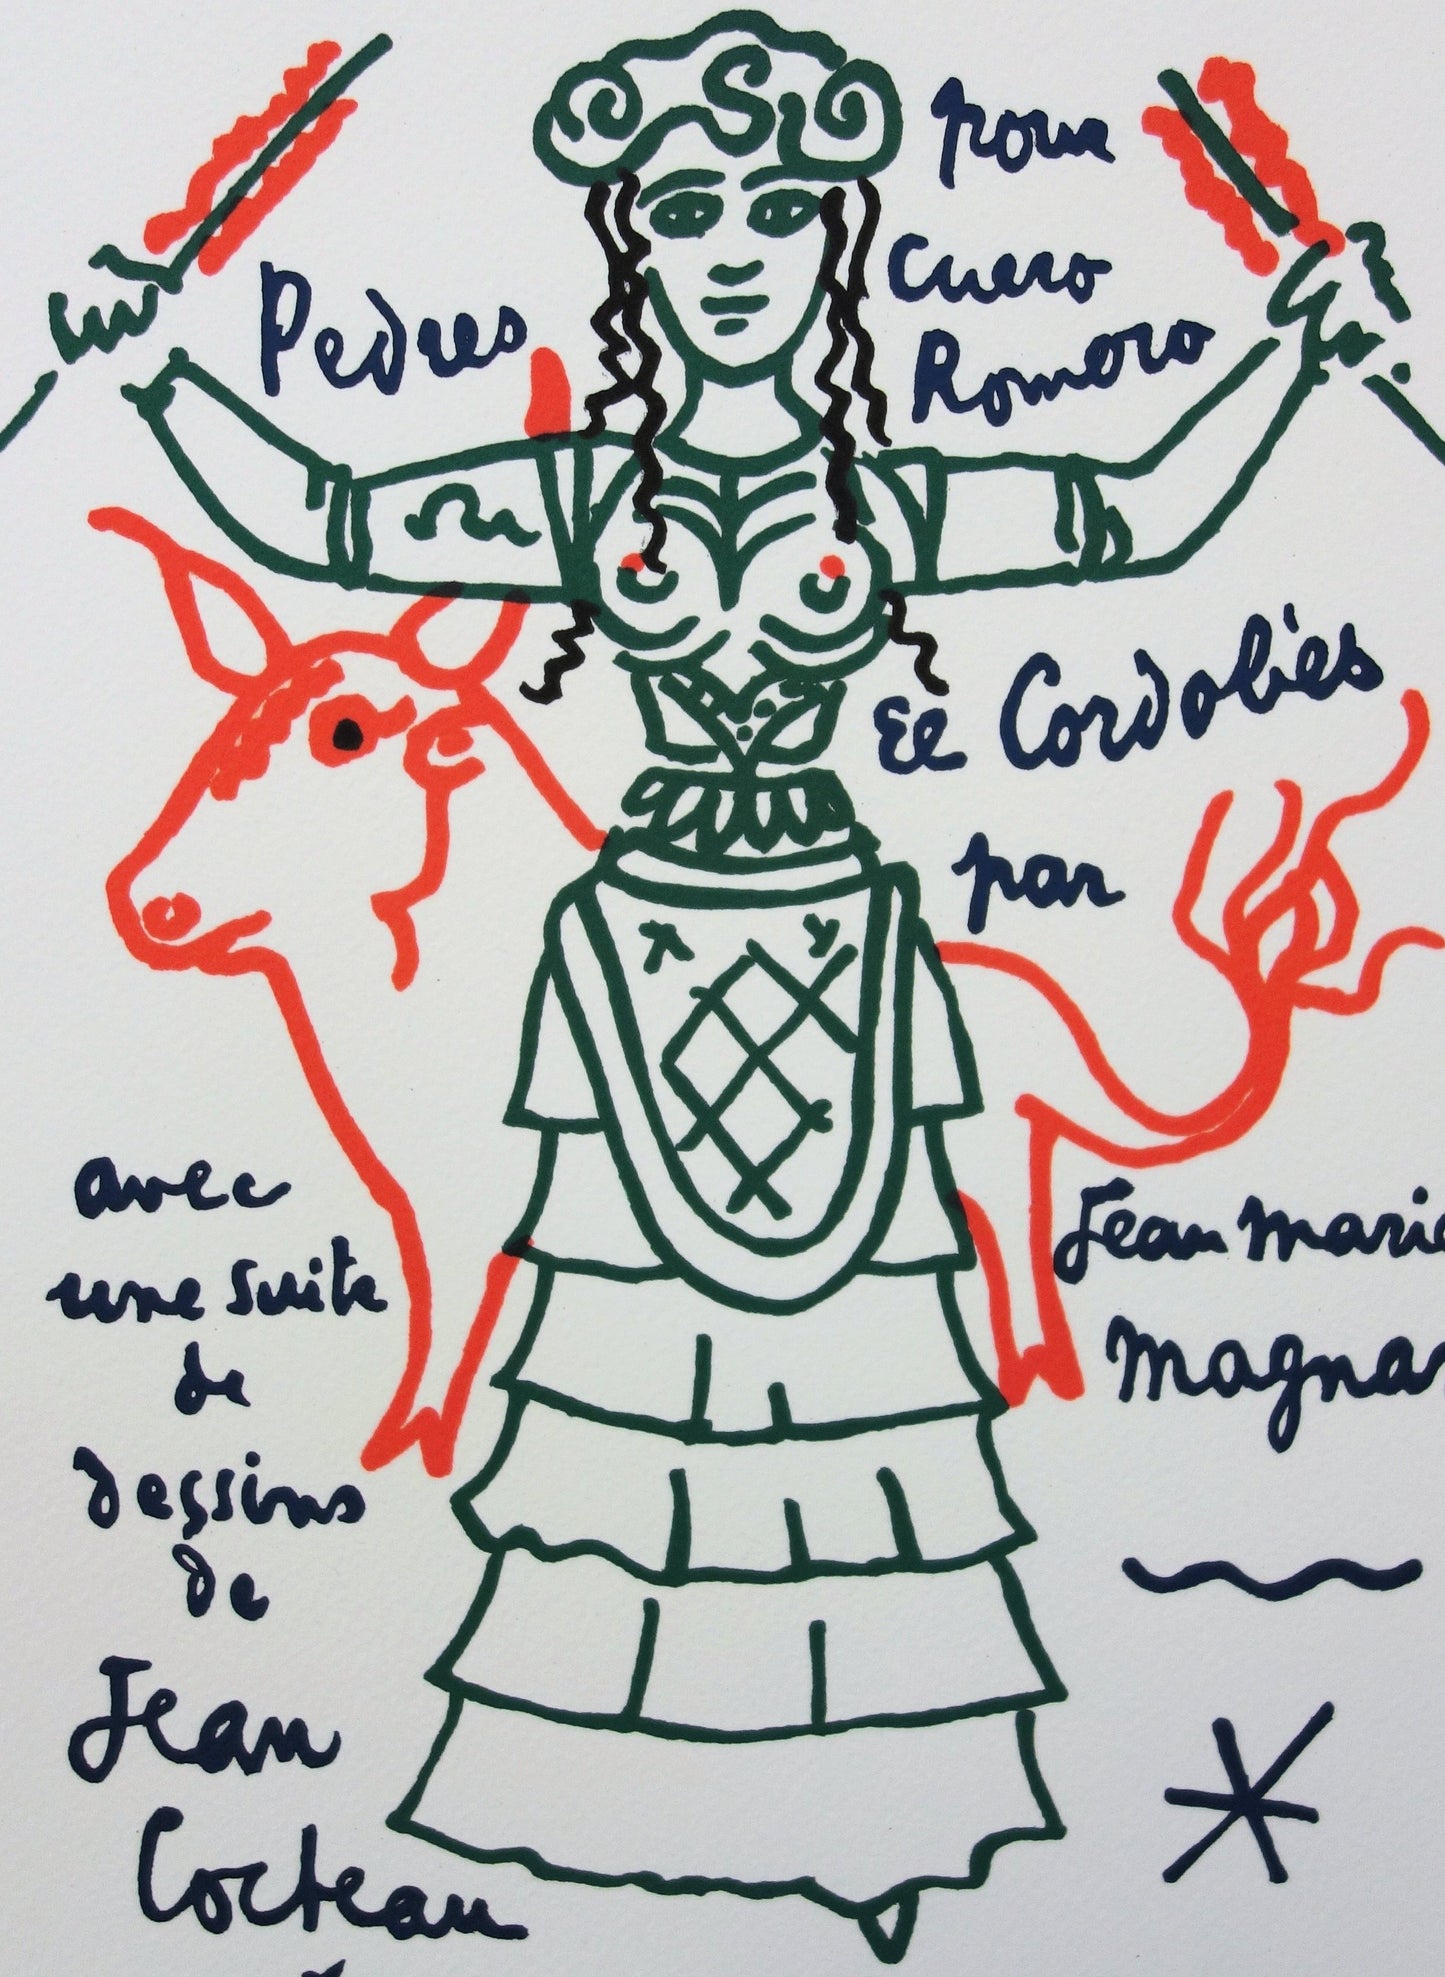 pour
Pedres
Curro
Romero
El Cordobès
par
Jean Marie
Magnan
avec
une suite
de
dessins
de
Jean
Cocteau